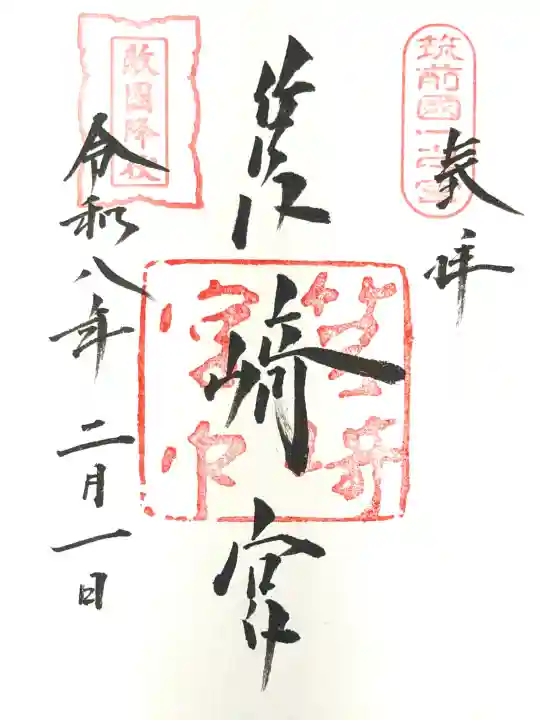 奉拝
筑前國一之宮
筥崎宮
筥崎
宮印
敵国降伏
令和八年 二月一日